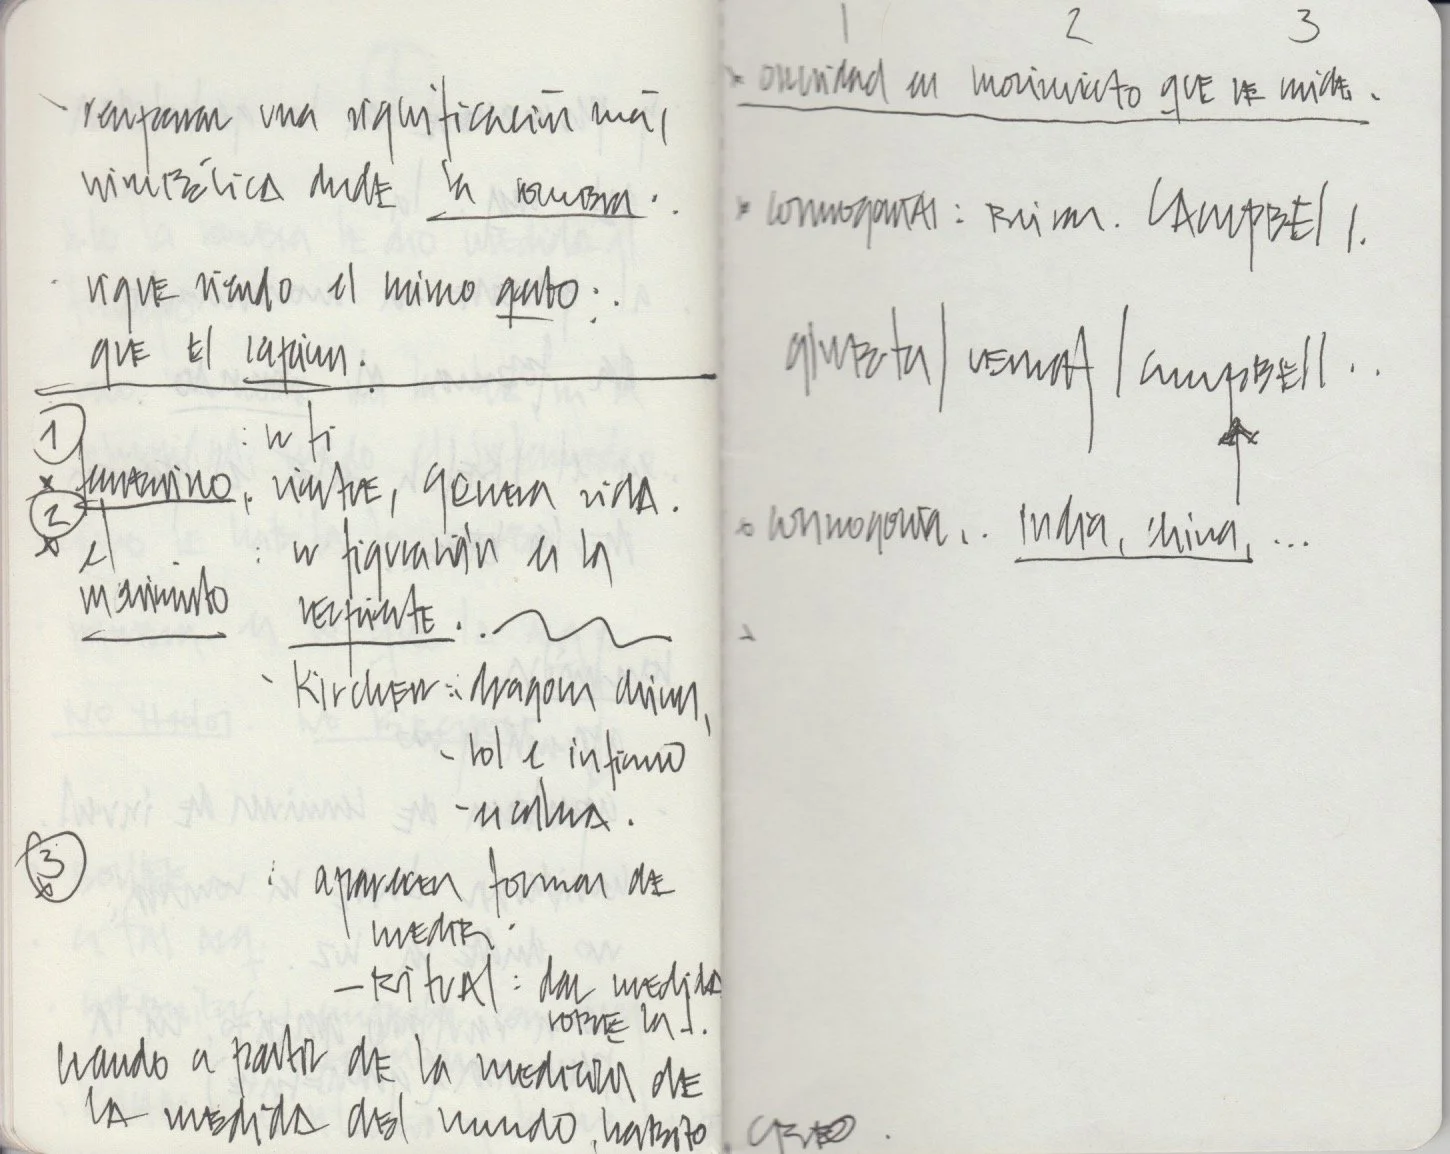 una significación más
simbólica desde la sombra.
sigue siendo el mismo gesto:.
que el
1
femenino, vientre, genera vida.
2
el : su figuración es la
movimiento
serpiente..
- Kircher: dragon chino,
- sol e
- escalera.
3
: aparecen formas de
medir.
- Ritual: dar medida
sobre la
cuando a partir de la medición de
la medida del mundo, habito, creo.
1 2 3
oscuridad en movimiento que se mide.
cosmogonías: CAMPBELL.
gimbeta | vernat | campbell..
cosmogonía.. India, china, ...